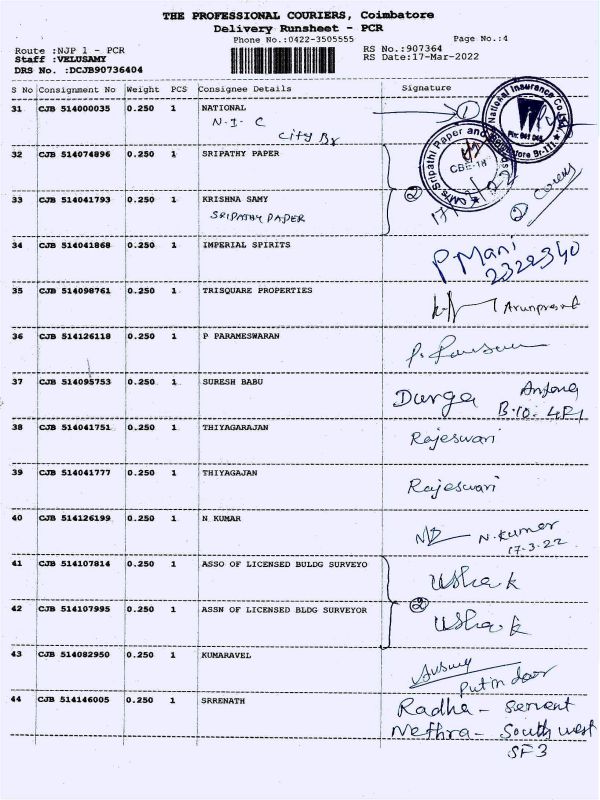 THE PROFESSIONAL COURIERS, Coimbatore
Delivery Runsheet - PCR
Phone No.:0422-3505555
Page No.:4
Route :NJP 1 - PCR
RS No.:907364
Staff :VELUSAMY
RS Date:17-Mar-2022
DRS No. :DCJB90736404
S No Consignment No Weight PCS Consignee Details Signature
31 CJB 514000035 0.250 1 NATIONAL
N-I-C
City Br
1
National Insurance Co
Sripathi Paper and
CBE-18
32 CJB 514074896 0.250 1 SRIPATHY PAPER
2
33 CJB 514041793 0.250 1 KRISHNA SAMY
SRIPATHY PAPER
2 covers
34 CJB 514041868 0.250 1 IMPERIAL SPIRITS
P. Mani
2322340
35 CJB 514098761 0.250 1 TRISQUARE PROPERTIES
36 CJB 514126118 0.250 1 P PARAMESWARAN
37 CJB 514095753 0.250 1 SURESH BABU
Durga
B.10.
38 CJB 514041751 0.250 1 THIYAGARAJAN
Rajeswari
39 CJB 514041777 0.250 1 THIYAGAJAN
Rajeswari
40 CJB 514126199 0.250 1 N KUMAR
N. Kumar
17-3-22
41 CJB 514107814 0.250 1 ASSO OF LICENSED BULDG SURVEYO
Usha k
2
42 CJB 514107995 0.250 1 ASSN OF LICENSED BLDG SURVEYOR
Usha k
43 CJB 514082950 0.250 1 KUMARAVEL
Put in door
44 CJB 514146005 0.250 1 SRRENATH
Radha - Servent
Nethra - South west
SF3